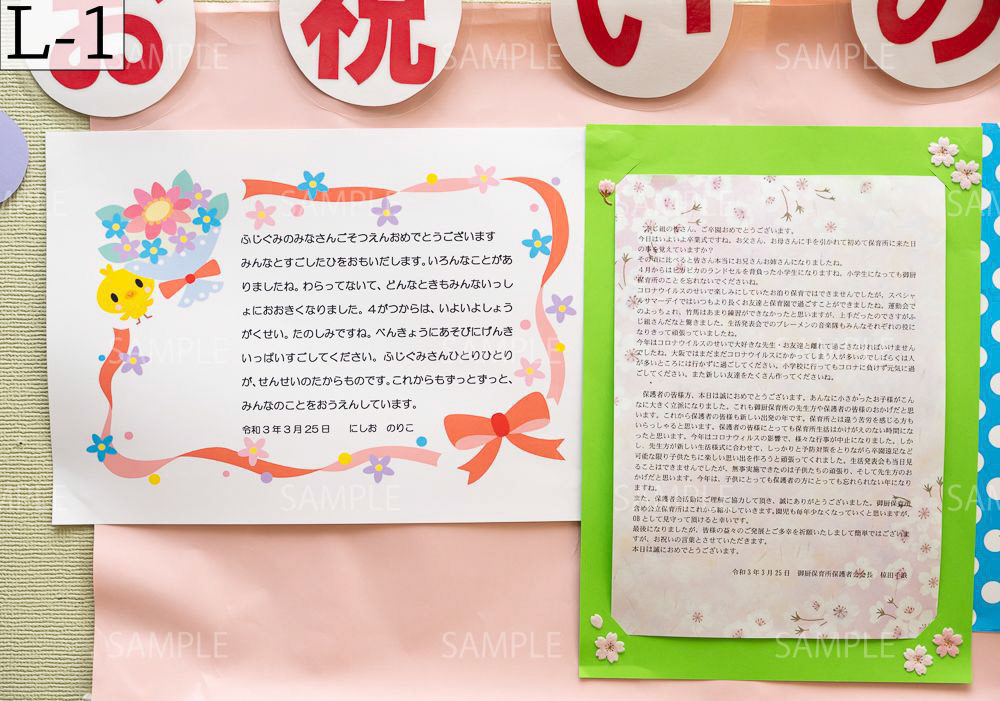 L-1
お祝いの
ふじぐみのみなさんごそつえんおめでとうございます
みんなとすごしたひをおもいだします。いろんなことがあ
りましたね。わらってないて、どんなときもみんないっし
ょにおおきくなりました。4がつからは、いよいよしょう
がくせい。たのしみですね。べんきょうにあそびにげんき
いっぱいすごしてください。ふじぐみさんひとりひとり
が、せんせいのたからものです。これからもずっとずっと、
みんなのことをおうえんしています。
令和3年3月25日 にしお のりこ
ふじ組の皆さん、ご卒園おめでとうございます。
今日はいよいよ卒業式ですね。お父さん、お母さんに手を引かれて初めて保育所に来た日
の事を覚えていますか？
その頃に比べると皆さん本当にお兄さんお姉さんになりましたね。
4月からはピカピカのランドセルを背負った小学生になりますね。小学生になっても御厨
保育所のことを忘れないでくださいね。
コロナウイルスのせいで楽しみにしていたお泊り保育ではできませんでしたが、スペシャ
ルサマーデイではいつもより長くお友達と保育園で過ごすことができましたね。運動会で
のよっちょれ、竹馬はあまり練習ができなかったと思いますが、上手だったのでさすがふ
じ組さんだなと驚きました。生活発表会でのブレーメンの音楽隊もみんなそれぞれの役に
なりきって頑張っていましたね。
今年はコロナウイルスのせいで大好きな先生・お友達と離れて過ごさなければいけません
でしたね。大阪ではまだまだコロナウイルスにかかってしまう人が多いのでしばらくは人
が多いところには行かずに過ごしてください。小学校に行ってもコロナに負けず元気に過
ごしてください。また新しい友達をたくさん作ってくださいね。
保護者の皆様方、本日は誠におめでとうございます。あんなに小さかったお子様がこん
なに大きく立派になりました。これも御厨保育所の先生方や保護者の皆様のおかげだと思
います。これから保護者の皆様も新しい出発の年です。保育所とは違う苦労を感じる方も
いらっしゃると思います。保護者の皆様にとっても保育所生活はかけがえのない時間にな
ったと思います。今年はコロナウィルスの影響で、様々な行事が中止になりました。しか
し、先生方が新しい生活様式に合わせて、しっかりと予防対策をとりながら卒園遠足など
可能な限り子供たちに楽しい思い出を作ろうと頑張ってくれました。生活発表会も当日見
ることはできませんでしたが、無事実施できたのは子供たちの頑張り、そして先生方のお
かげだと思います。今年は、子供にとっても保護者の方にとっても忘れられない年になり
ますね。
また、保護者会活動にご理解ご協力して頂き、誠にありがとうございました。御厨保育所
含め公立保育所はこれから縮小していきます。園児も毎年少なくなっていくと思いますが、
OBとして見守って頂けると幸いです。
最後になりましたが、皆様の益々のご発展とご多幸を祈願いたしまして簡単ではございま
すが、お祝いの言葉とさせていただきます。
本日は誠におめでとうございます。
令和3年3月25日 御厨保育所保護者会会長